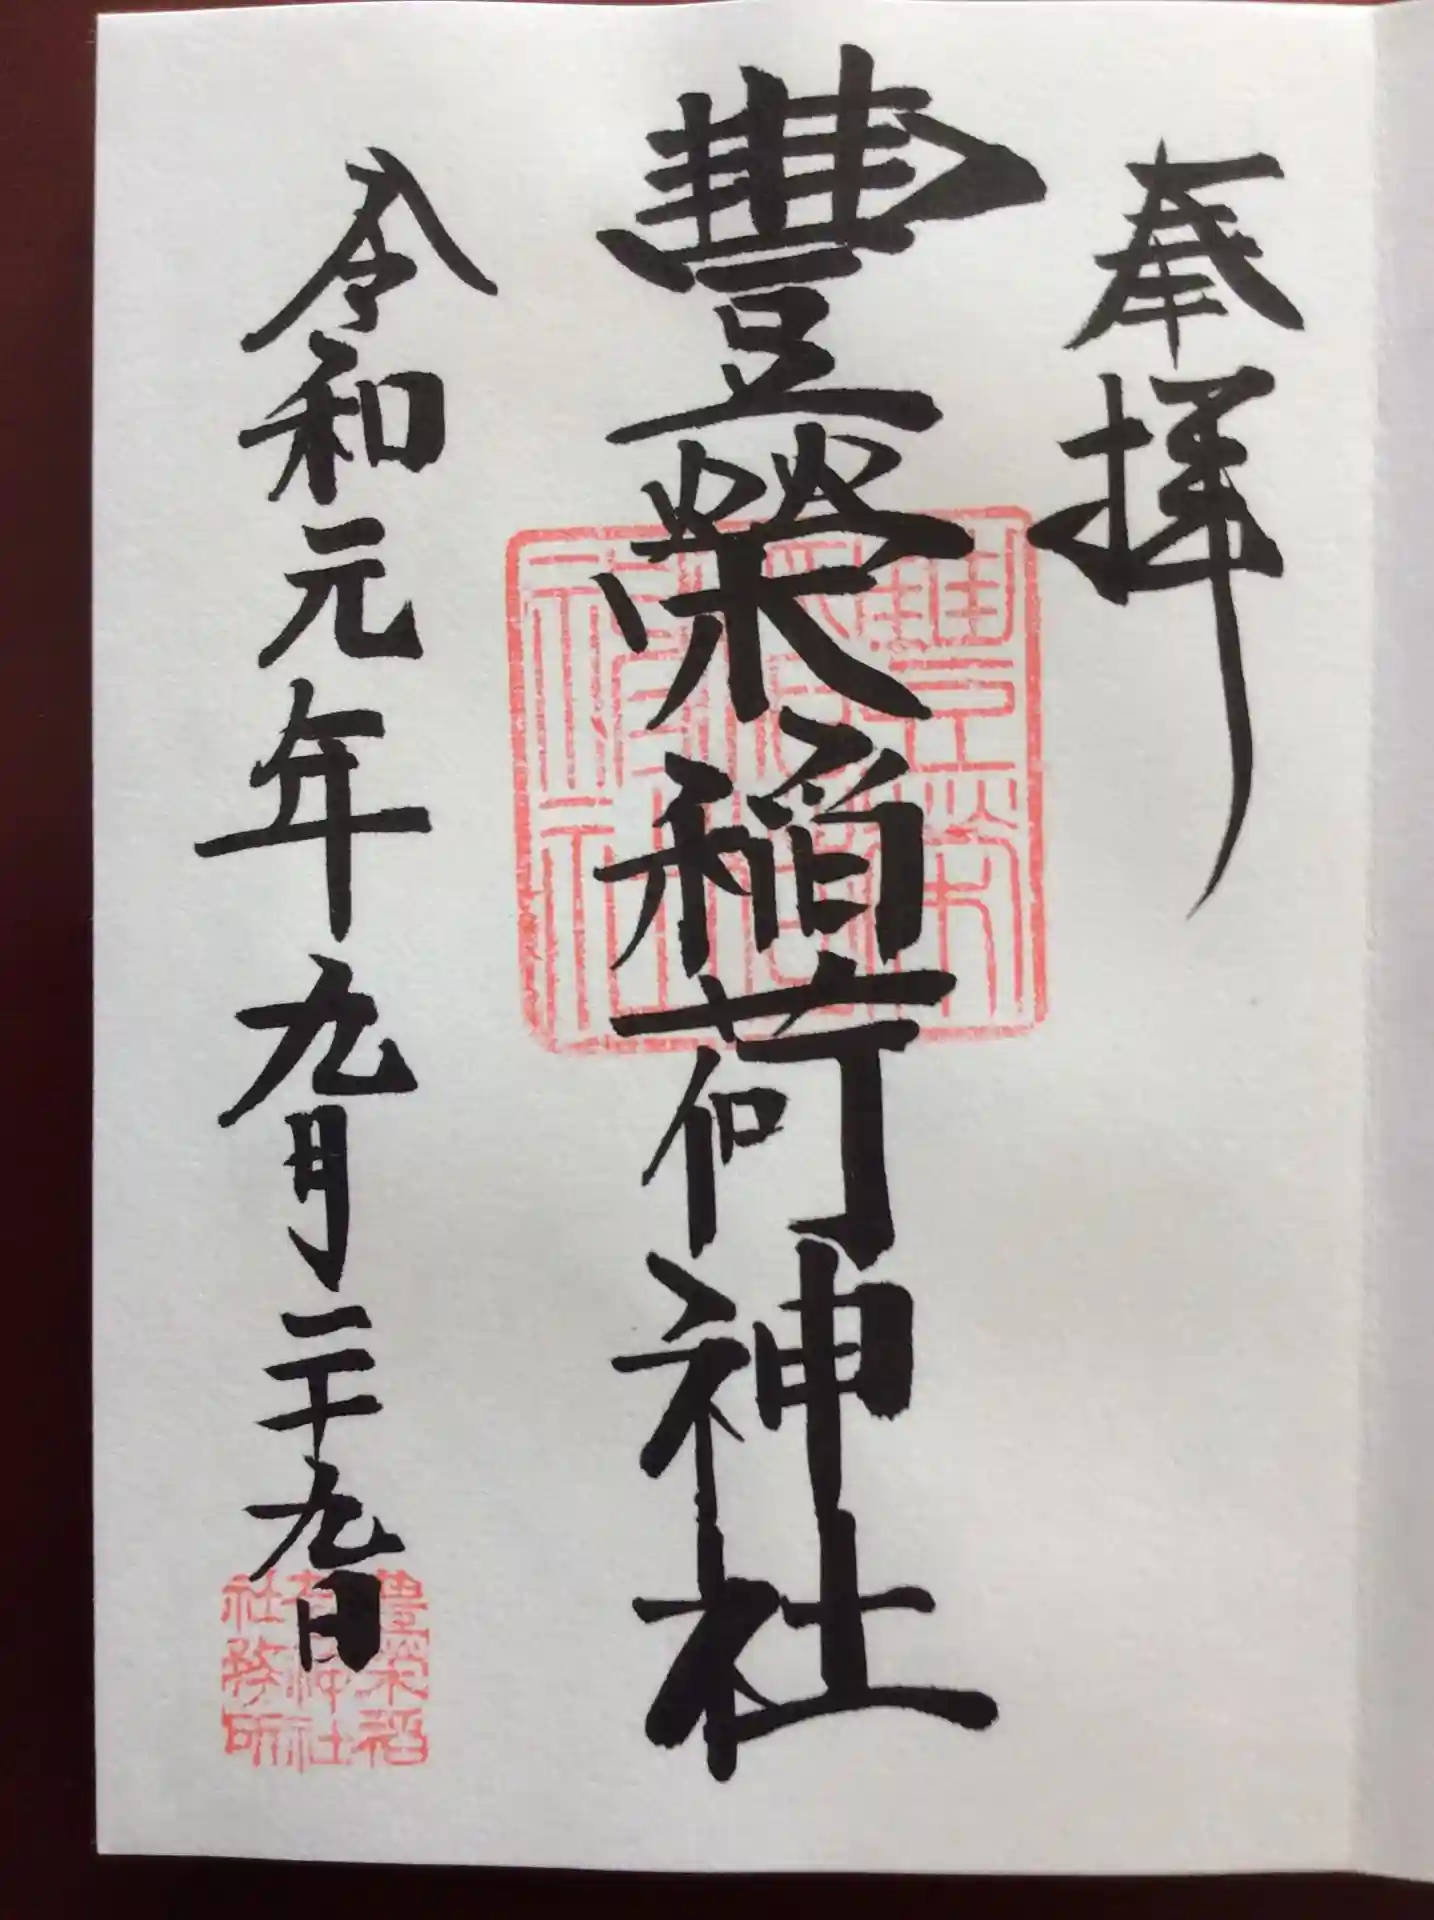 奉拝
豊榮稲荷神社
令和元年九月二十九日
豊榮稲
荷神社
社務所